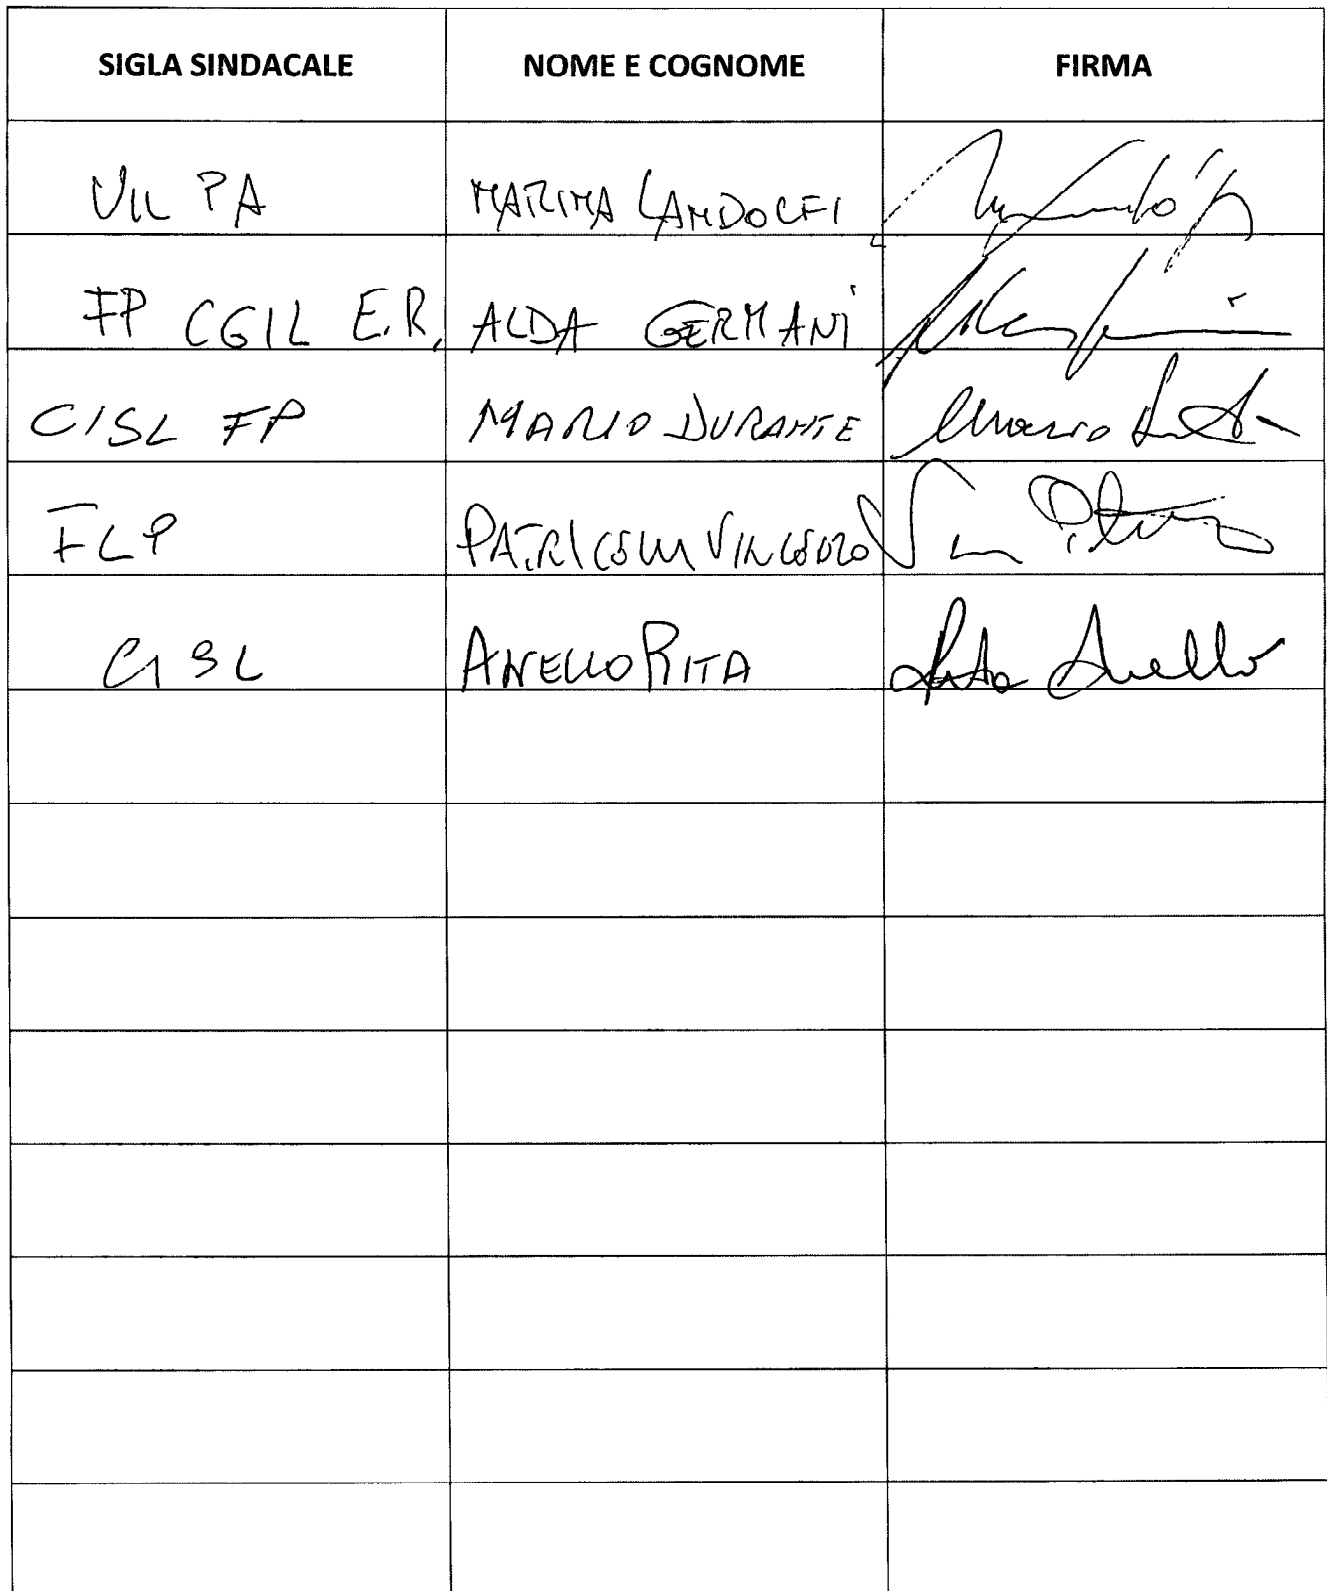 SIGLA SINDACALE NOME E COGNOME FIRMA
UIL PA MARINA LANDOLFI
FP CGIL E.R. ALDA GERMANI
CISL FP MARIO DURANTE Mario
FLP VINCENZO
CISL ANELLO RITA Rita Anello